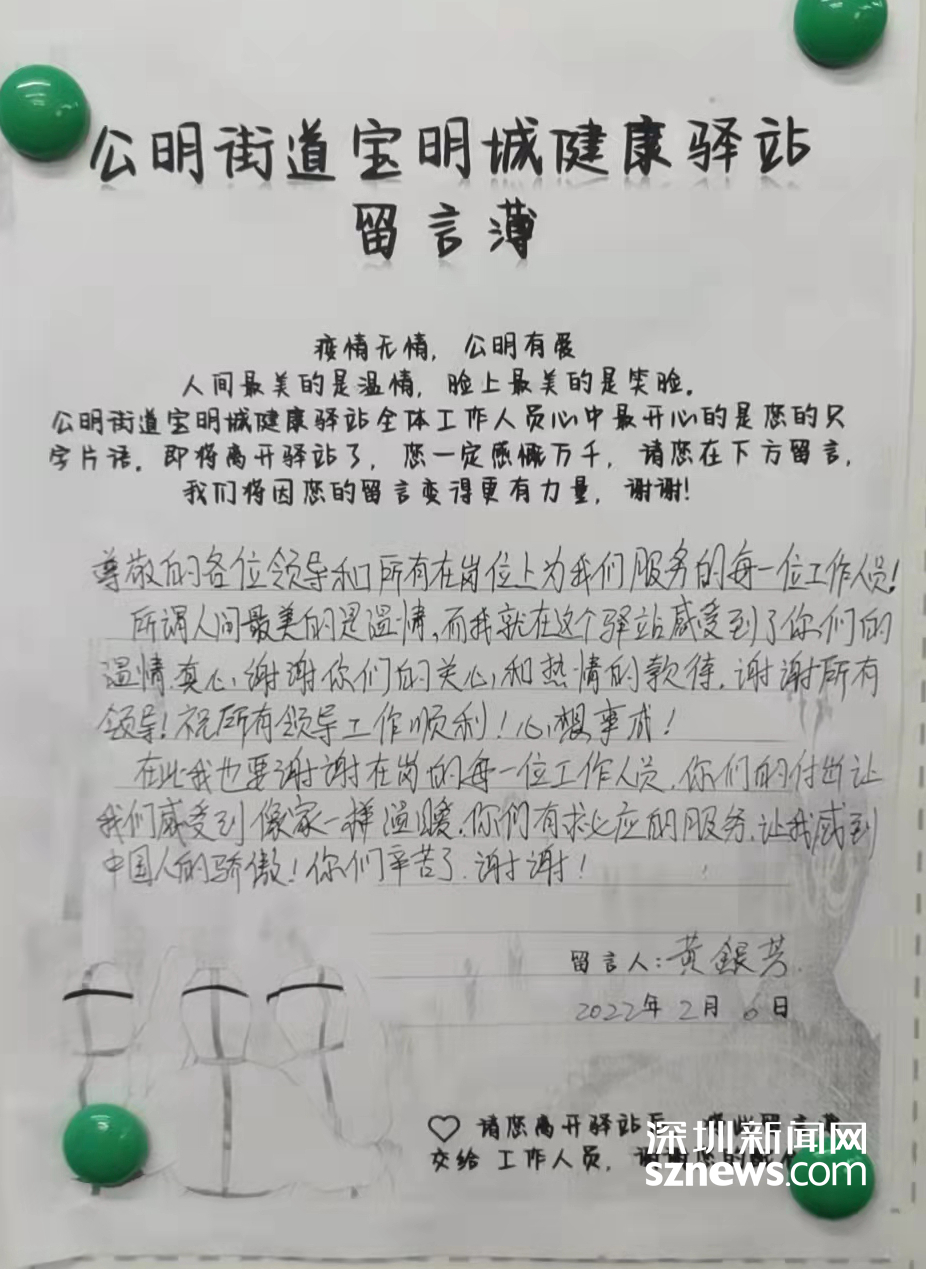 公明街道宝明城健康驿站
留言薄
疫情无情，公明有爱
人间最美的是温情，脸上最美的是笑脸。
公明街道宝明城健康驿站全体工作人员心中最开心的是您的只
字片语。即将离开驿站了，您一定感慨万千，请您在下方留言，
我们将因您的留言变得更有力量，谢谢！
尊敬的各位领导和所有在岗位上为我们服务的每一位工作人员！
所谓人间最美的是温情，而我就在这个驿站感受到了你们的
温情.真心，谢谢你们的关心，和热情的款待．谢谢所有
领导！祝所有领导工作顺利！心想事成！
在此我也要谢谢在岗的每一位工作人员．你们的付出让
我们感受到像家一样温暖．你们有求必应的服务．让我感到
中国人的骄傲！你们辛苦了．谢谢！
留言人：黄银芳.
2022年2月6日
♡ 请您离开驿站
交给工作人员，
深圳新闻网
sznews.com